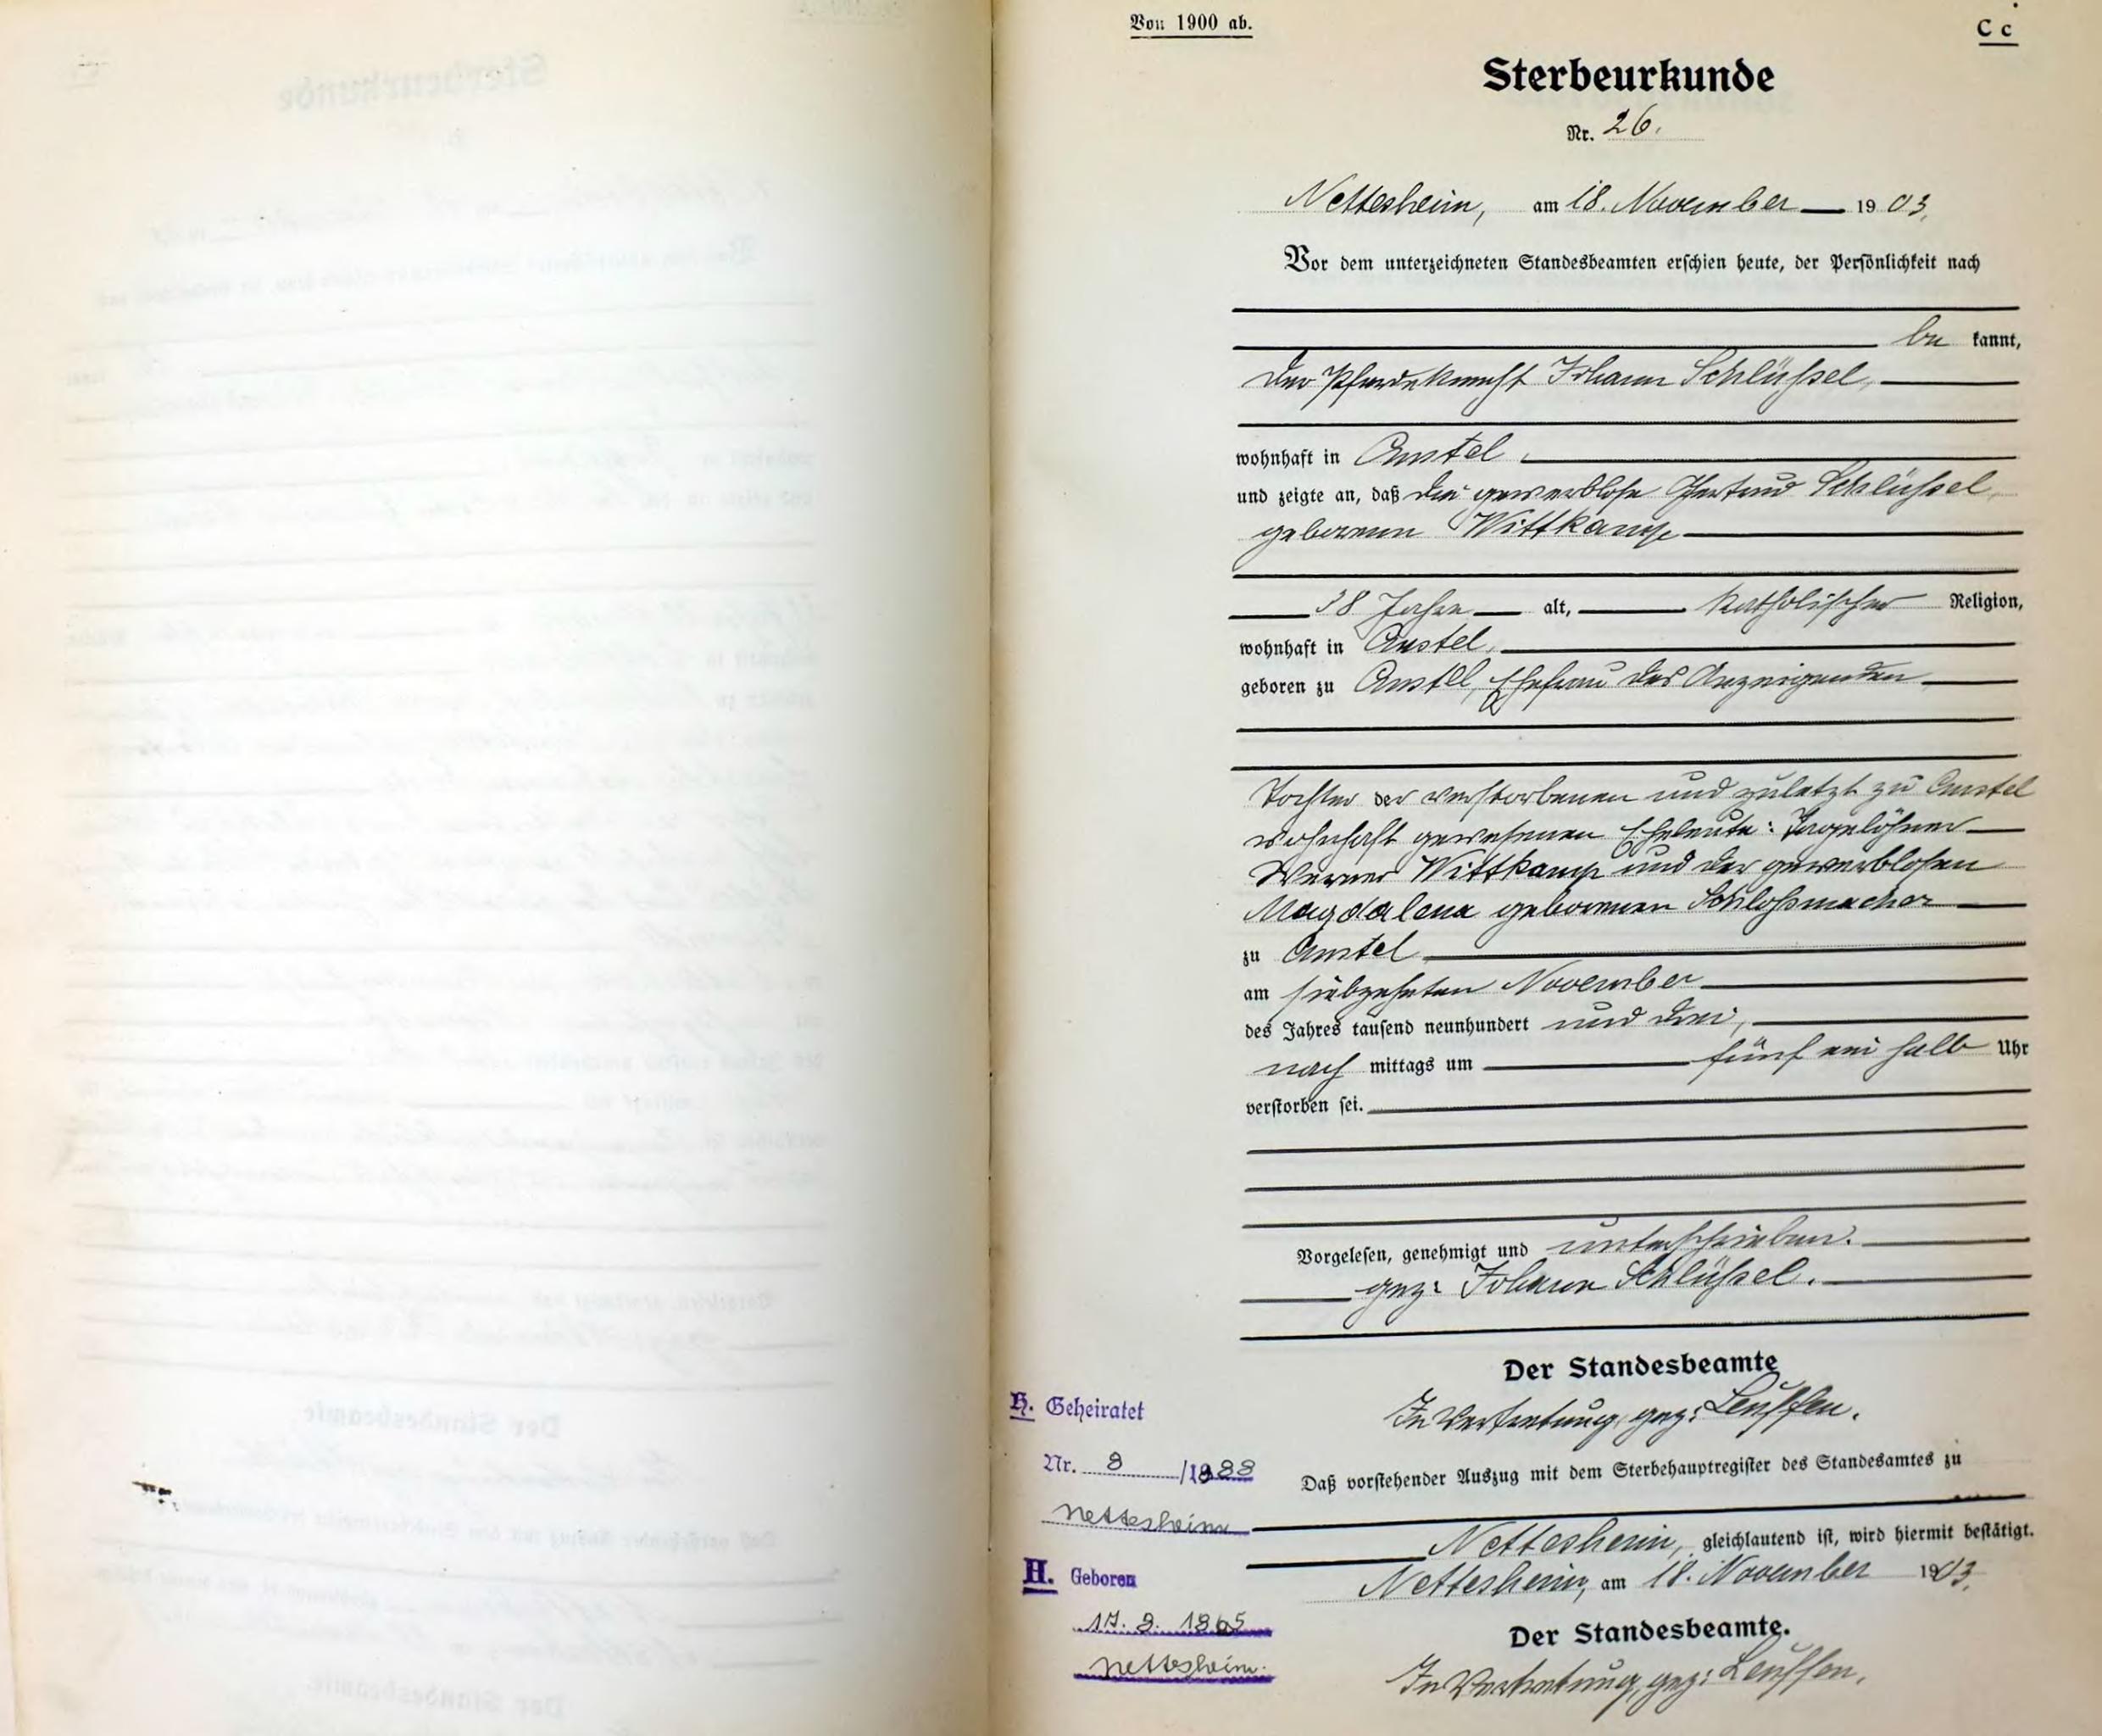 Von 1900 ab.
C c
Sterbeurkunde
Nr. 26.
Nettesheim, am 18. November 1903.
Vor dem unterzeichneten Standesbeamten erschien heute, der Persönlichkeit nach
be kannt,
der Pferdeknecht Johann Schlüssel,
wohnhaft in Anstel,
und zeigte an, daß die gewerblose Gertrud Schlüssel,
geborenen Wittkamp
38 Jahre alt, katholischer Religion,
wohnhaft in Anstel,
geboren zu Anstel, Ehefrau des Anzeigenden
Tochter der verstorbenen und zuletzt zu Anstel
wohnhaft gewesenen Eheleute: Tagelöhner
Werner Wittkamp und der gewerblosen
Magdalena geborenen Schloßmacher
zu Anstel
am siebzehnten November
des Jahres tausend neunhundert und drei,
nach mittags um fünf ein halb Uhr
verstorben sei.
Vorgelesen, genehmigt und unterschrieben.
gez: Johann Schlüssel.
Der Standesbeamte
In Vertretung, gez: Leuffen.
Daß vorstehender Auszug mit dem Sterbehauptregister des Standesamtes zu
Nettesheim, gleichlautend ist, wird hiermit bestätigt.
Nettesheim, am 18. November 1903.
Der Standesbeamte.
In Vertretung, gez: Leuffen.
H. Geheiratet
Nr. 8 /1888
Nettesheim
H. Geboren
17. 8. 1865
Nettesheim.